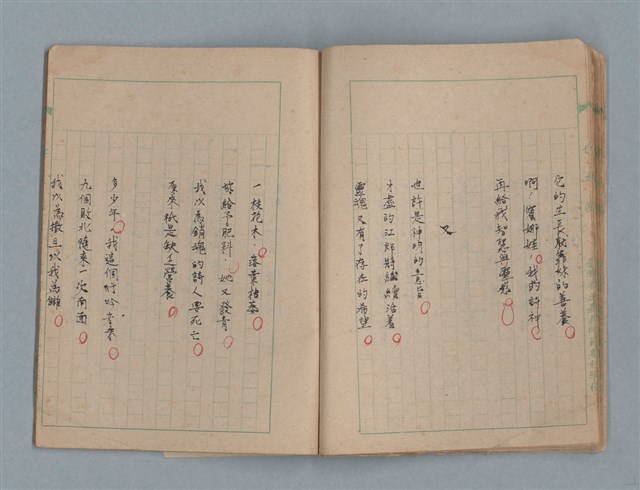 它的生長耽靠妳的善養。
啊，寶娜娃，我的詩神
再給我智慧與靈感。
又
也許是神明的意旨。
才盡的江郎將繼續活着。
靈魂又有了存在的希望。
一枝花木，落葉枯萎。
妳給予肥料，她又發青。
我以為銷魂的詩人要死亡。
原來祇是缺乏營養。
多少年，我這個行吟
九個敗北隨來一次南面。